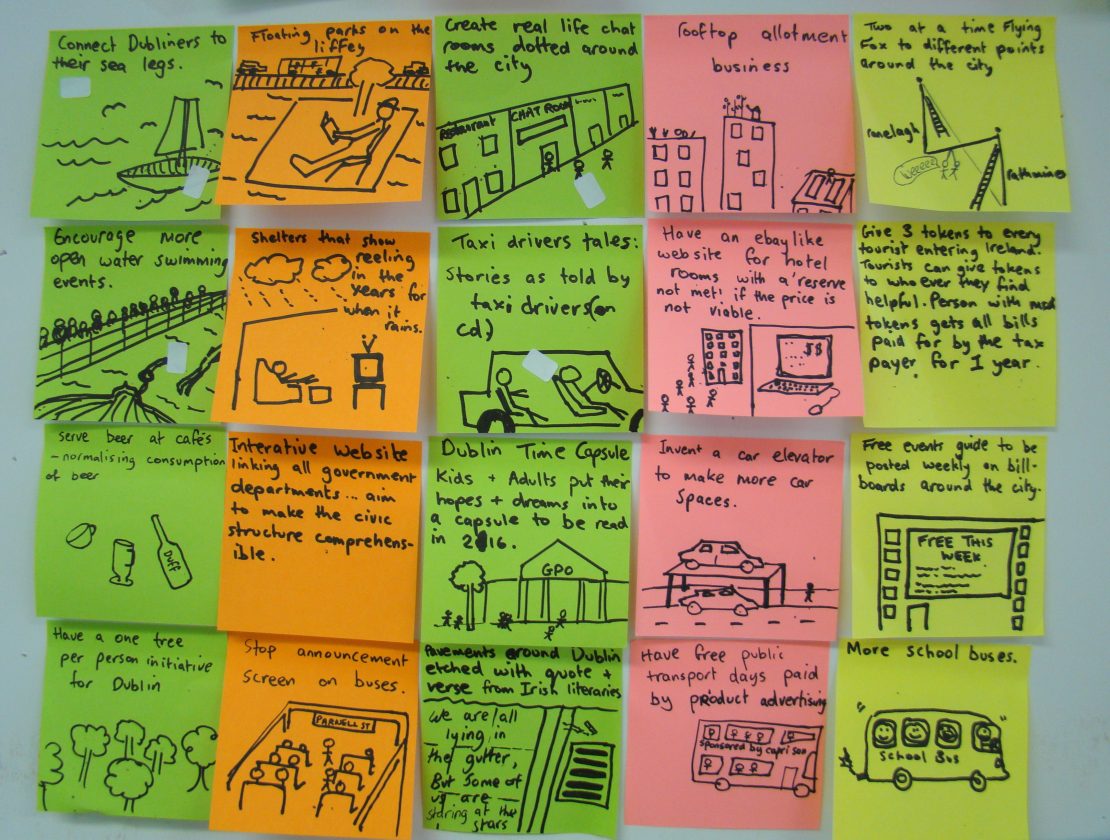 Connect Dubliners to
their sea legs.
Floating parks on the
liffey
Create real life chat
rooms dotted around
the city
Restaurant
CHAT ROOM
rooftop allotment
business
Two at a time Flying
Fox to different points
around the city
ranelagh
weeeez
Encourage more
open water swimming
events.
Shelters that show
reeling
in the
years for
when it
rains.
Taxi drivers tales:
Stories as told by
taxi drivers (on
cd)
Have an ebay like
website for hotel
rooms with a 'reserve
not met' if the price is
not viable.
$$
Give 3 tokens to every
tourist entering Ireland.
Tourists can give tokens
to who ever they find
helpful. Person with most
tokens gets all bills
paid for by the tax
payer for 1 year.
serve beer at cafés
- normalising consumption
of beer
Duff
Interative website
linking all government
departments... aim
to make the civic
structure comprehens-
ible.
Dublin Time Capsule
Kids + Adults put their
hopes + dreams into
a capsule to be read
in 2016.
GPO
Invent a car elevator
to make more car
Spaces.
Free events guide to be
posted weekly on bill-
boards around the city.
FREE THIS
WEEK
Have a one tree
per person initiative
for Dublin
Stop announcement
screen on buses.
PARNELL ST
Pavements around Dublin
etched with quote +
verse from Irish literaries
We are all
lying in
the gutter,
But some of
us are
staring at the
stars
Have free public
transport days paid
by product advertising
sponsored by capri son
More school buses.
School Bus